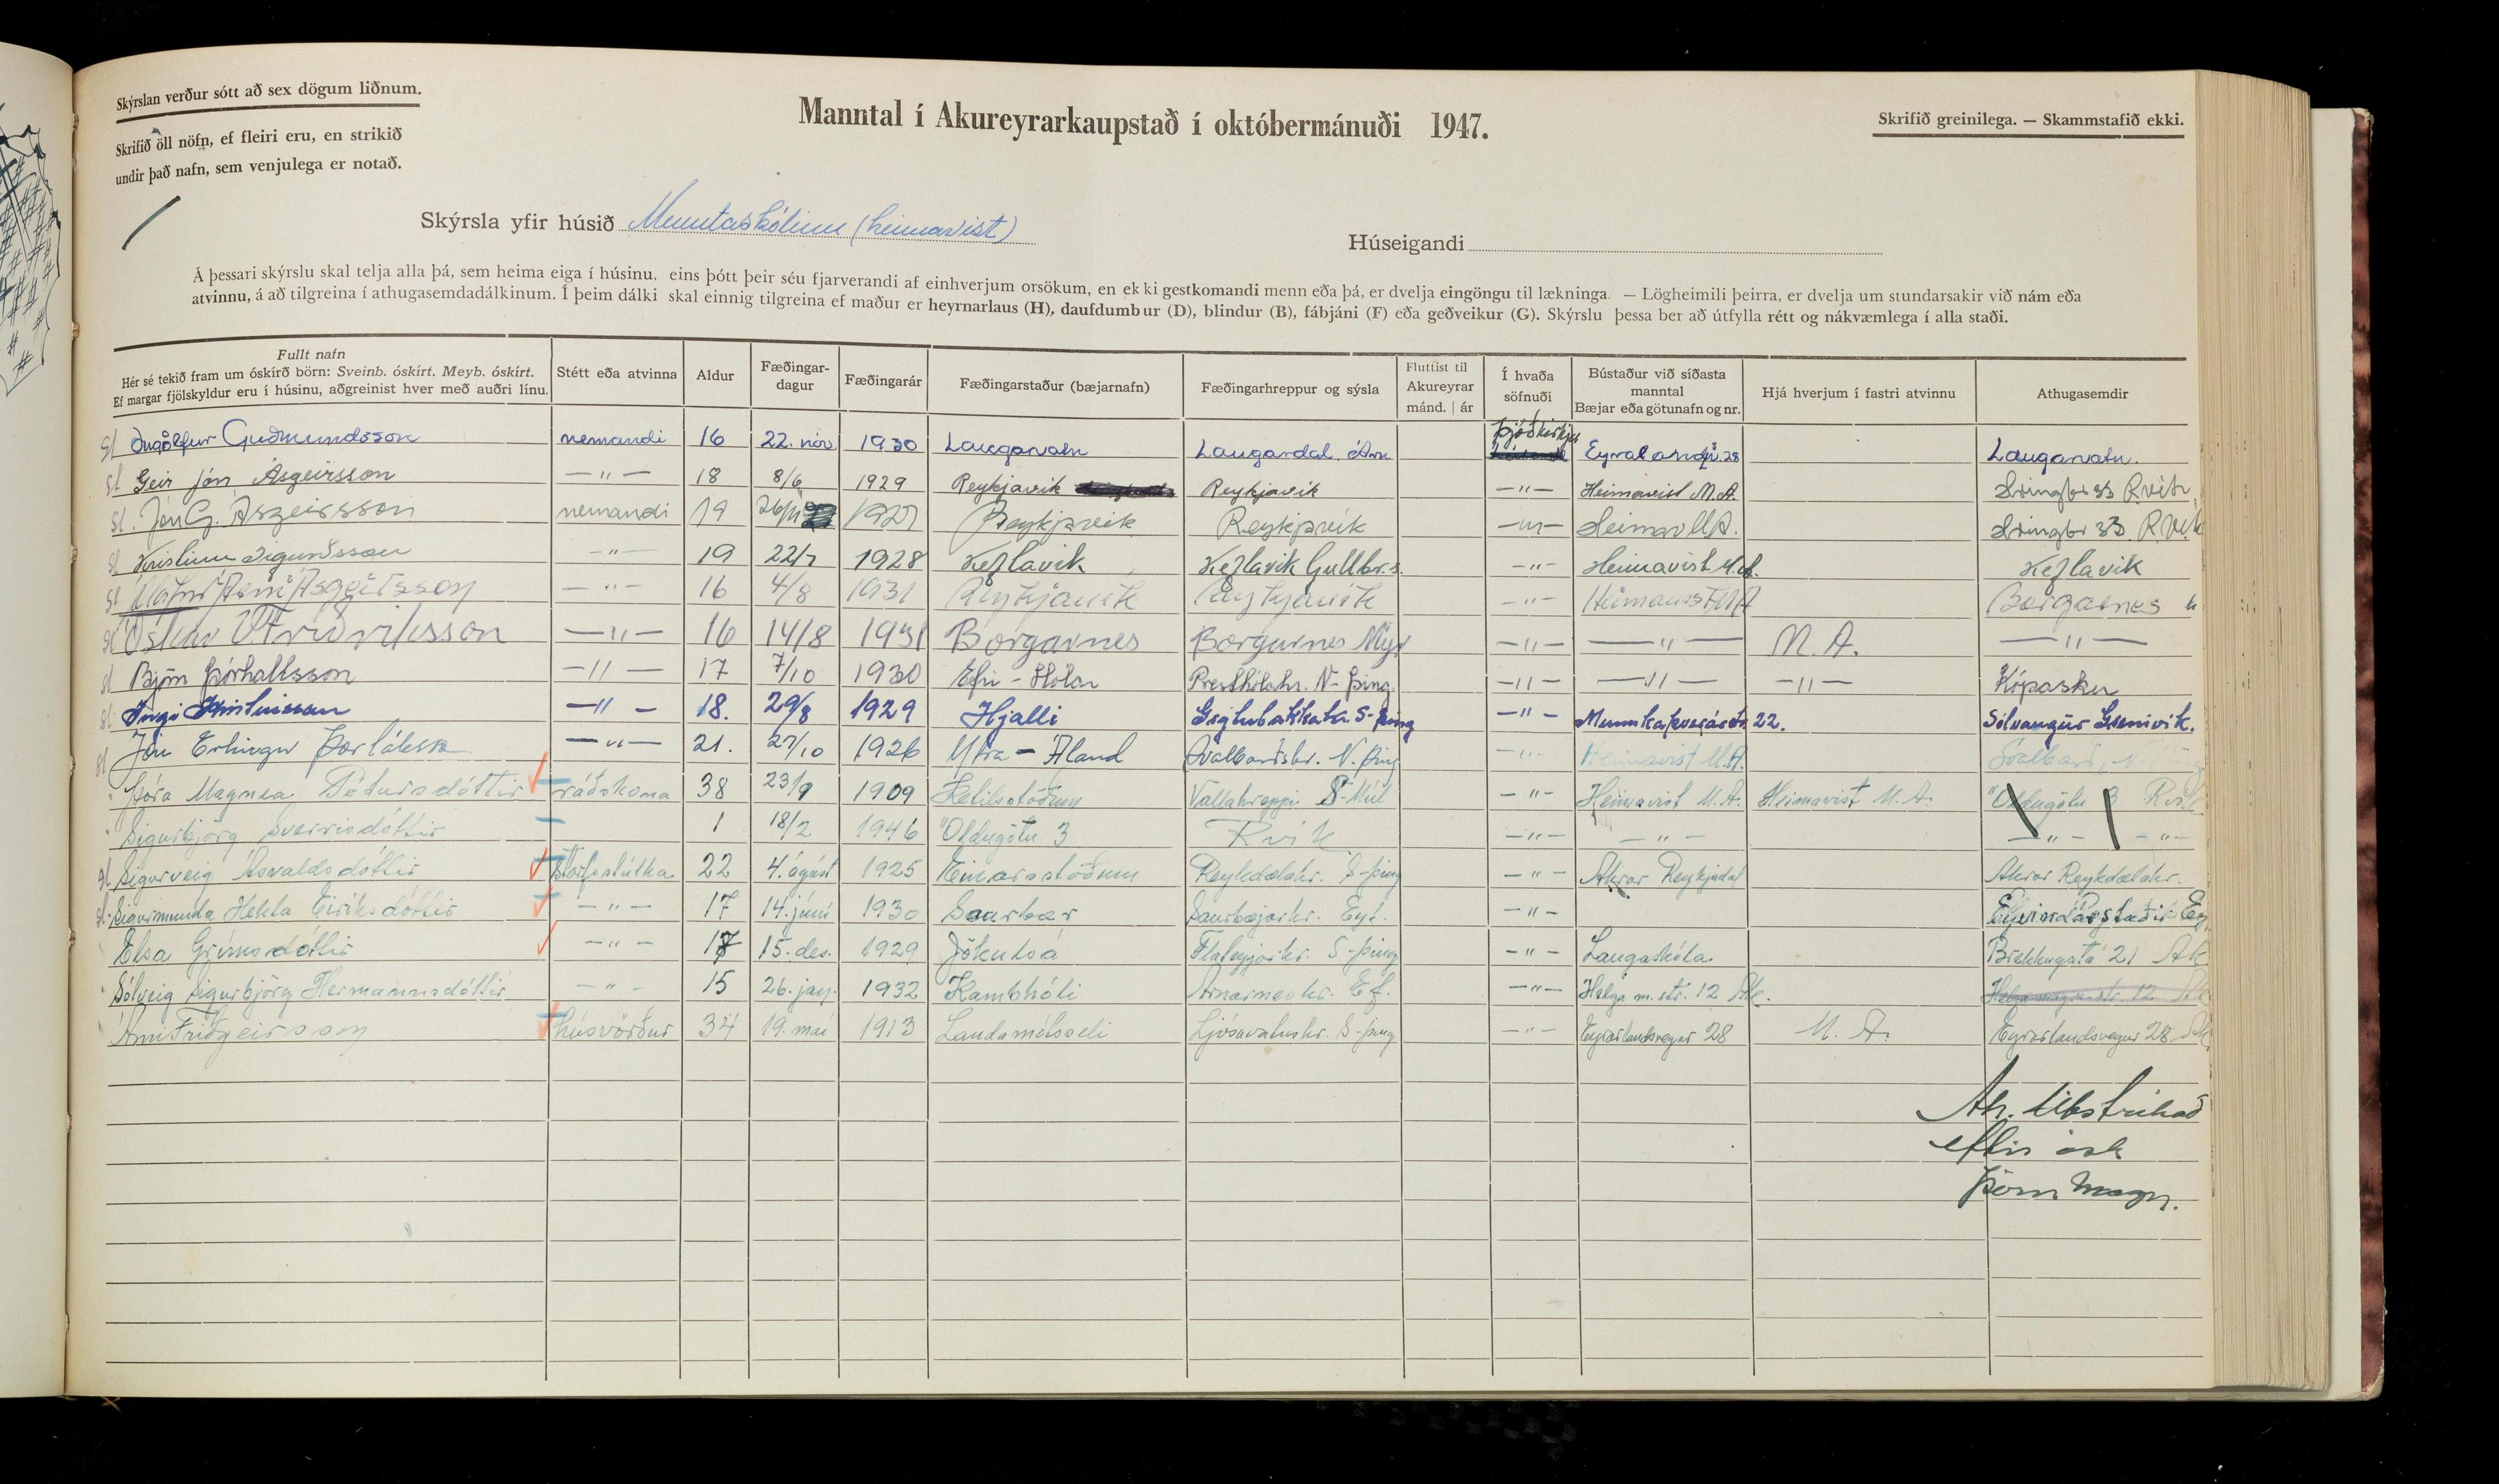 Skýrslan verður sótt að sex dögum liðnum.
Skrifið öll nöfn, ef fleiri eru, en strikið
undir það nafn, sem venjulega er notað.
Manntal í Akureyrarkaupstað í októbermánuði 1947.
Skrifið greinilega. — Skammstafið ekki.
Skýrsla yfir húsið Menntaskólinn (heimavist)
Húseigandi
Á þessari skýrslu skal telja alla þá, sem heima eiga í húsinu, eins þótt þeir séu fjarverandi af einhverjum orsökum, en ekki gestkomandi menn eða þá, er dvelja eingöngu til lækninga. — Lögheimili þeirra, er dvelja um stundarsakir við nám eða
atvinnu, á að tilgreina í athugasemdadálkinum. Í þeim dálki skal einnig tilgreina ef maður er heyrnarlaus (H), daufdumbur (D), blindur (B), fábjáni (F) eða geðveikur (G). Skýrslu þessa ber að útfylla rétt og nákvæmlega í alla staði.
Fullt nafn Hér sé tekið fram um óskírð börn: Sveinb. óskírt. Meyb. óskírt. Ef margar fjölskyldur eru í húsinu, aðgreinist hver með auðri línu. Stétt eða atvinna Aldur Fæðingar-dagur Fæðingarár Fæðingarstaður (bæjarnafn) Fæðingarhreppur og sýsla Fluttist til Akureyrar mánd. | ár Í hvaða söfnuði Bústaður við síðasta manntal Bæjar eða götunafn og nr. Hjá hverjum í fastri atvinnu Athugasemdir
sl Ingólfur Guðmundsson nemandi 16 22. nóv 1930 Laugarvatn Laugardal Árn Þjóðkirkju 28 Laugarvatn.
sl Geir Jón Ásgeirsson —"— 18 8/6 1929 Reykjavík Reykjavík —"— Heimavist M.A. Hringbr 33 Rvík
sl. Jón G. Ásgeirsson nemandi 19 26/11 1927 Reykjavík Reykjavík —"— Heimav M.A. Hringbr 33 Rvík
sl Kristinn Sigurðsson —"— 19 22/7 1928 Keflavík Keflavík Gullbr.s. —"— Heimavist M.A. Keflavík
sl Árni Ásgeirsson —"— 16 4/8 1931 Reykjavík Reykjavík —"— Heimavist MA Borgarnes
sl Óskar Friðriksson —"— 16 14/8 1931 Borgarnes Borgarnes Mýr —"— —"— M.A. —"—
sl Björn Þórhallsson —"— 17 7/10 1930 Efri-Hólar Presthólahr. N-Þing. —"— —"— —"— Kópasker
sl. Ingi Kristinsson —"— 18. 29/8 1929 Hjalli S-Þing —"— Munkaþverárstr. 22. Sólvangur Grenivík.
sl Jón Erlingur Þorláksson —"— 21. 27/10 1926 Ytra-Áland Svalbarðshr. N. Þing —"— Heimavist M.A. Svalbarð, N.
Þóra Magnea Pétursdóttir ráðskona 38 23/9 1909 Ketilsstöðum Vallahreppi S-Múl —"— Heimavist M.A. Heimavist M.A. Öldugötu 3 Rvík
Sigurbjörg Sverrisdóttir 1 18/2 1946 Öldugötu 3 Rvík —"— —"— —"— —"—
sl Sigurveig Ásvaldsdóttir starfsstúlka 22 4. ágúst 1925 Einarsstöðum Reykdælahr. S-Þing —"— Akrar Reykjadal Akrar Reykdælahr.
sl. Sigurmunda Hekla Eiríksdóttir —"— 17 14. júní 1930 Saurbær Saurbæjarhr. Eyf. —"—
Elsa Grímsdóttir —"— 17 15. des. 1929 Jökulsá Flateyjarhr. S-Þing —"— Laugaskóla Brekkugata 21 Ak
Sólveig Sigurbjörg Hermannsdóttir —"— 15 26. jan. 1932 Kambhóli Arnarneshr. Ef. —"— Helga m.str. 12 Ak. Helga magrastr. 12 Ak
Árni Friðgeirsson húsvörður 34 19. maí 1913 Landamótsseli Ljósavatnshr. S-Þing —"— Eyrarlandsvegur 28 M.A. Eyrarlandsvegur 28 Ak
Ath. Útstrikað
eftir ósk
Þóru Magn.